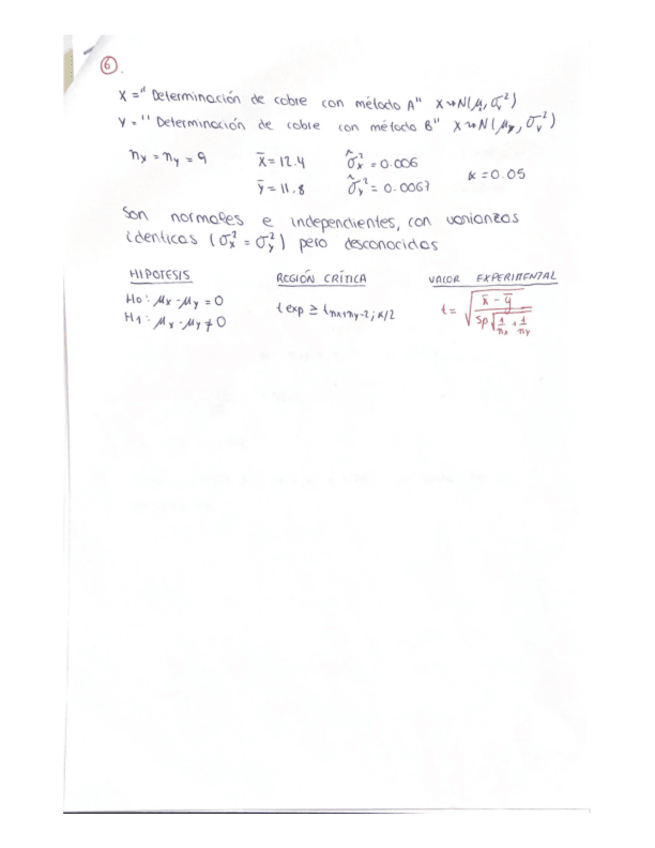 6.
X = " Determinación de cobre con método A" X→N(μₓ, σₓ²)
Y = " Determinación de cobre con método B" X→N(μy, σy²)
nx = ny = 9 x̄ = 12.4 σ̂x² = 0.006 α = 0.05
ȳ = 11.8 σ̂y² = 0.0067
Son normales e independientes, con varianzas
identicas (σx² = σy²) pero desconocidas
HIPOTESIS REGIÓN CRÍTICA VALOR EXPERIMENTAL
Ho: μx - μy = 0 t exp ≥ t nx+ny-2; α/2 t = √((x̄ - ȳ) / (Sp √(1/nx + 1/ny)))
H1: μx - μy ≠ 0